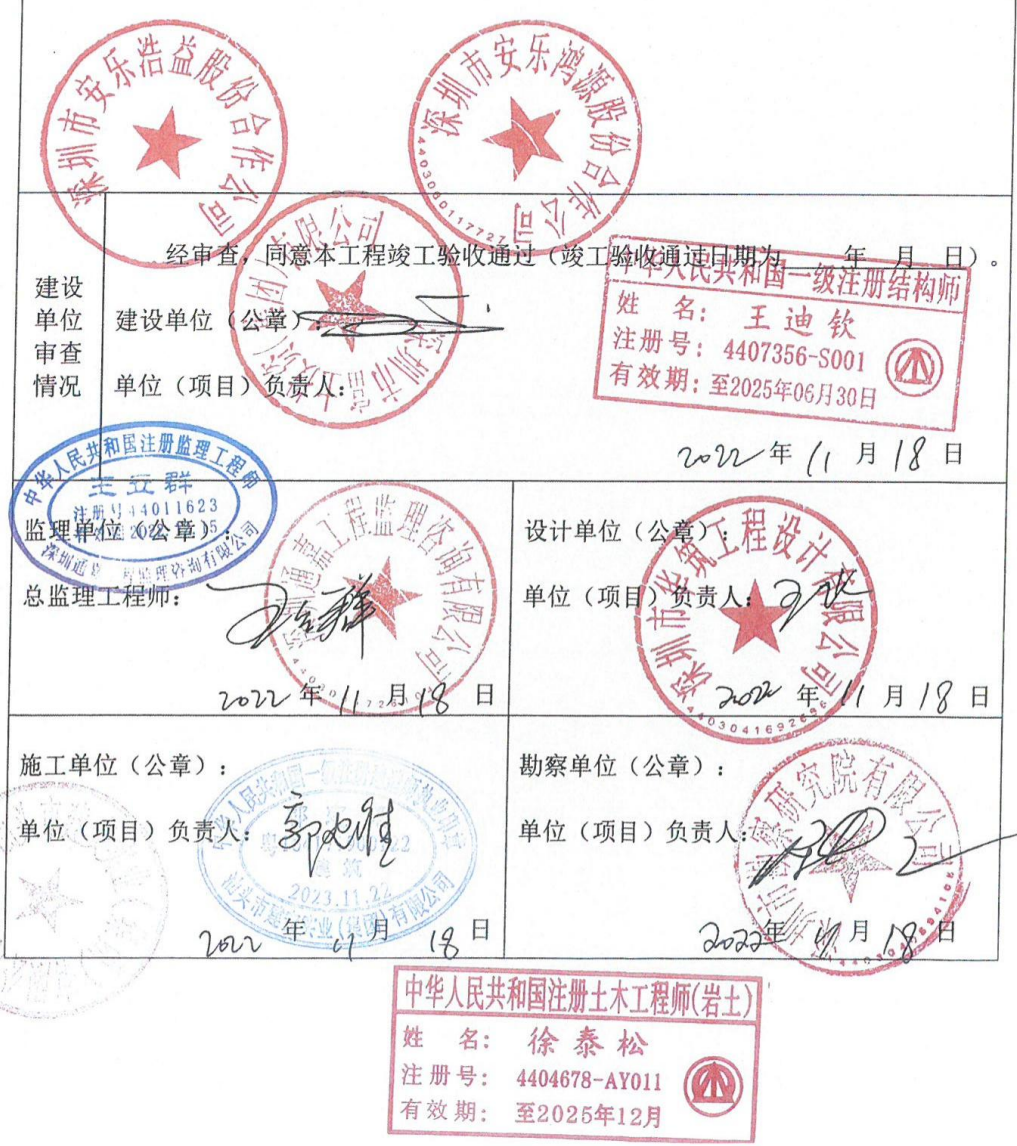 深圳市安乐浩益股份合作公司
深圳市安乐鸿源股份合作公司
4403060117727
经审查，同意本工程竣工验收通过（竣工验收通过日期为 年 月 日）。
建设
单位
审查
情况
建设单位（公章）：
单位（项目）负责人：
中华人民共和国一级注册结构师
姓 名： 王迪钦
注册号： 4407356-S001
有效期：至2025年06月30日
2022年11月18日
中华人民共和国注册监理工程师
王立群
注册号44011623
监理单位（公章）：
总监理工程师：
王立群
2022年11月18日
设计单位（公章）：
单位（项目）负责人：
深圳市华筑工程设计有限公司
4403041692696
2022年11月18日
施工单位（公章）：
单位（项目）负责人：
2023.11.22
2022年11月18日
勘察单位（公章）：
单位（项目）负责人：
研究院有限公司
2022年11月18日
中华人民共和国注册土木工程师(岩土)
姓 名： 徐泰松
注册号： 4404678-AY011
有效期： 至2025年12月